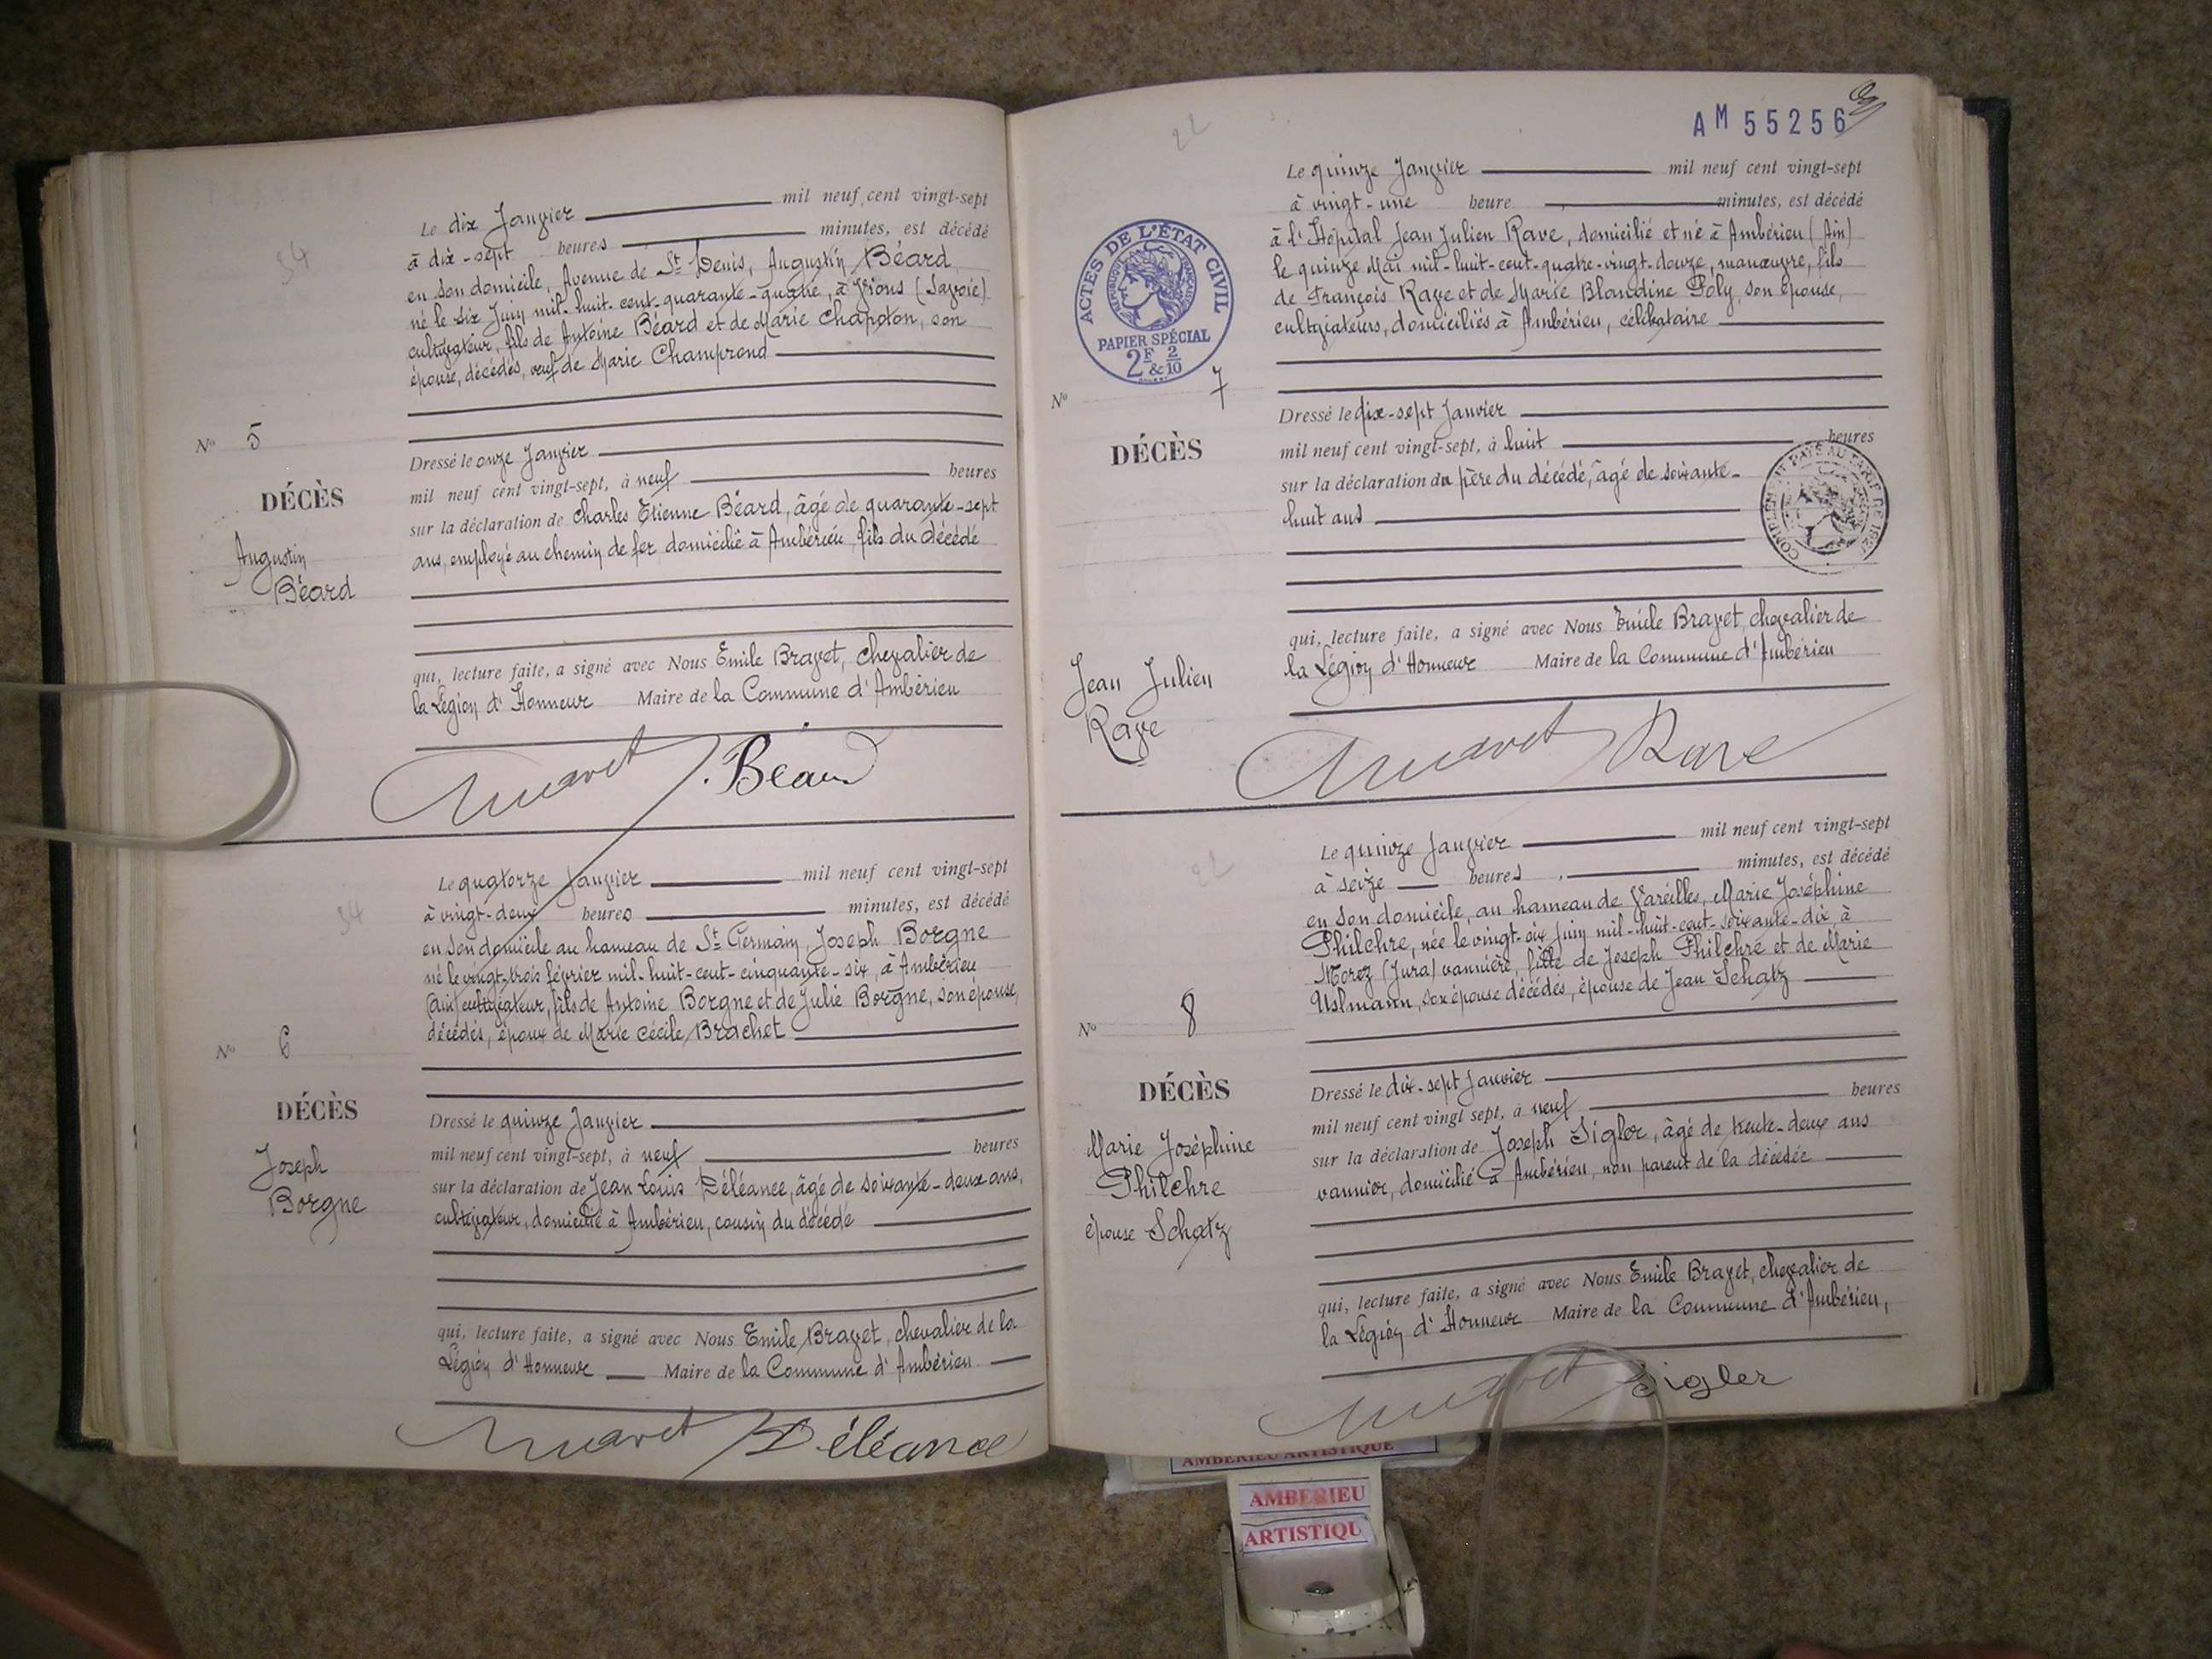 Le dix Janvier mil neuf cent vingt-sept
à dix-sept heures minutes, est décédé
en son domicile, Avenue de St Denis, Augustin Béard
né le six Juin mil-huit-cent-quarante-quatre, à (Savoie)
cultivateur, fils de Antoine Béard et de Marie Chapoton, son
épouse, décédés, veuf de Marie Champrond
No 5
DÉCÈS
Augustin
Béard
Dressé le onze Janvier
mil neuf cent vingt-sept, à neuf heures
sur la déclaration de Charles Etienne Béard, âgé de quarante-sept
ans, employé au chemin de fer domicilié à Ambérieu, fils du décédé
qui, lecture faite, a signé avec Nous Emile Bravet, chevalier de
la Légion d'Honneur Maire de la Commune d'Ambérieu
Béard
Le quatorze Janvier mil neuf cent vingt-sept
à vingt-deux heures minutes, est décédé
en son domicile au hameau de St Germain, Joseph Borgne
né le vingt-trois février mil-huit-cent-cinquante-six, à Ambérieu
(Ain) cultivateur, fils de Antoine Borgne et de Julie Borgne, son épouse,
décédés, époux de Marie Cécile Brachet
No 6
DÉCÈS
Joseph
Borgne
Dressé le quinze Janvier
mil neuf cent vingt-sept, à neuf heures
sur la déclaration de Jean Louis Déléance, âgé de soixante-deux ans,
cultivateur, domicilié à Ambérieu, cousin du décédé
qui, lecture faite, a signé avec Nous Emile Bravet, chevalier de la
Légion d'Honneur Maire de la Commune d'Ambérieu
Déléance
AM 55256
22
Le quinze Janvier mil neuf cent vingt-sept
à vingt-une heure minutes, est décédé
à l'Hôpital Jean Julien Rave, domicilié et né à Ambérieu (Ain)
le quinze Mai mil-huit-cent-quatre-vingt-douze, manœuvre, fils
de François Rave et de Marie Blandine Poly, son épouse,
cultivateurs, domiciliés à Ambérieu, célibataire
ACTES DE L'ÉTAT CIVIL
RÉPUBLIQUE FRANÇAISE
PAPIER SPÉCIAL
2F & 2/10
No 7
DÉCÈS
Jean Julien
Rave
Dressé le dix-sept Janvier
mil neuf cent vingt-sept, à huit heures
sur la déclaration du père du décédé, âgé de soixante-
huit ans
qui, lecture faite, a signé avec Nous Emile Bravet, chevalier de
la Légion d'Honneur Maire de la Commune d'Ambérieu
Rave
22
Le quinze Janvier mil neuf cent vingt-sept
à seize heures minutes, est décédé
en son domicile, au hameau de Vareilles, Marie Joséphine
Philchre, née le vingt-six Juin mil-huit-cent-soixante-dix, à
Morez (Jura) vannière, fille de Joseph Philchre et de Marie
Uslmann, son épouse décédés, épouse de Jean Schatz
No 8
DÉCÈS
Marie Joséphine
Philchre
épouse Schatz
Dressé le dix-sept Janvier
mil neuf cent vingt sept, à neuf heures
sur la déclaration de Joseph Sigler, âgé de trente-deux ans
vannier, domicilié à Ambérieu, non parent de la décédée
qui, lecture faite, a signé avec Nous Emile Bravet, chevalier de
la Légion d'Honneur Maire de la Commune d'Ambérieu,
Sigler
AMBERIEU ARTISTIQUE
AMBERIEU
ARTISTIQU